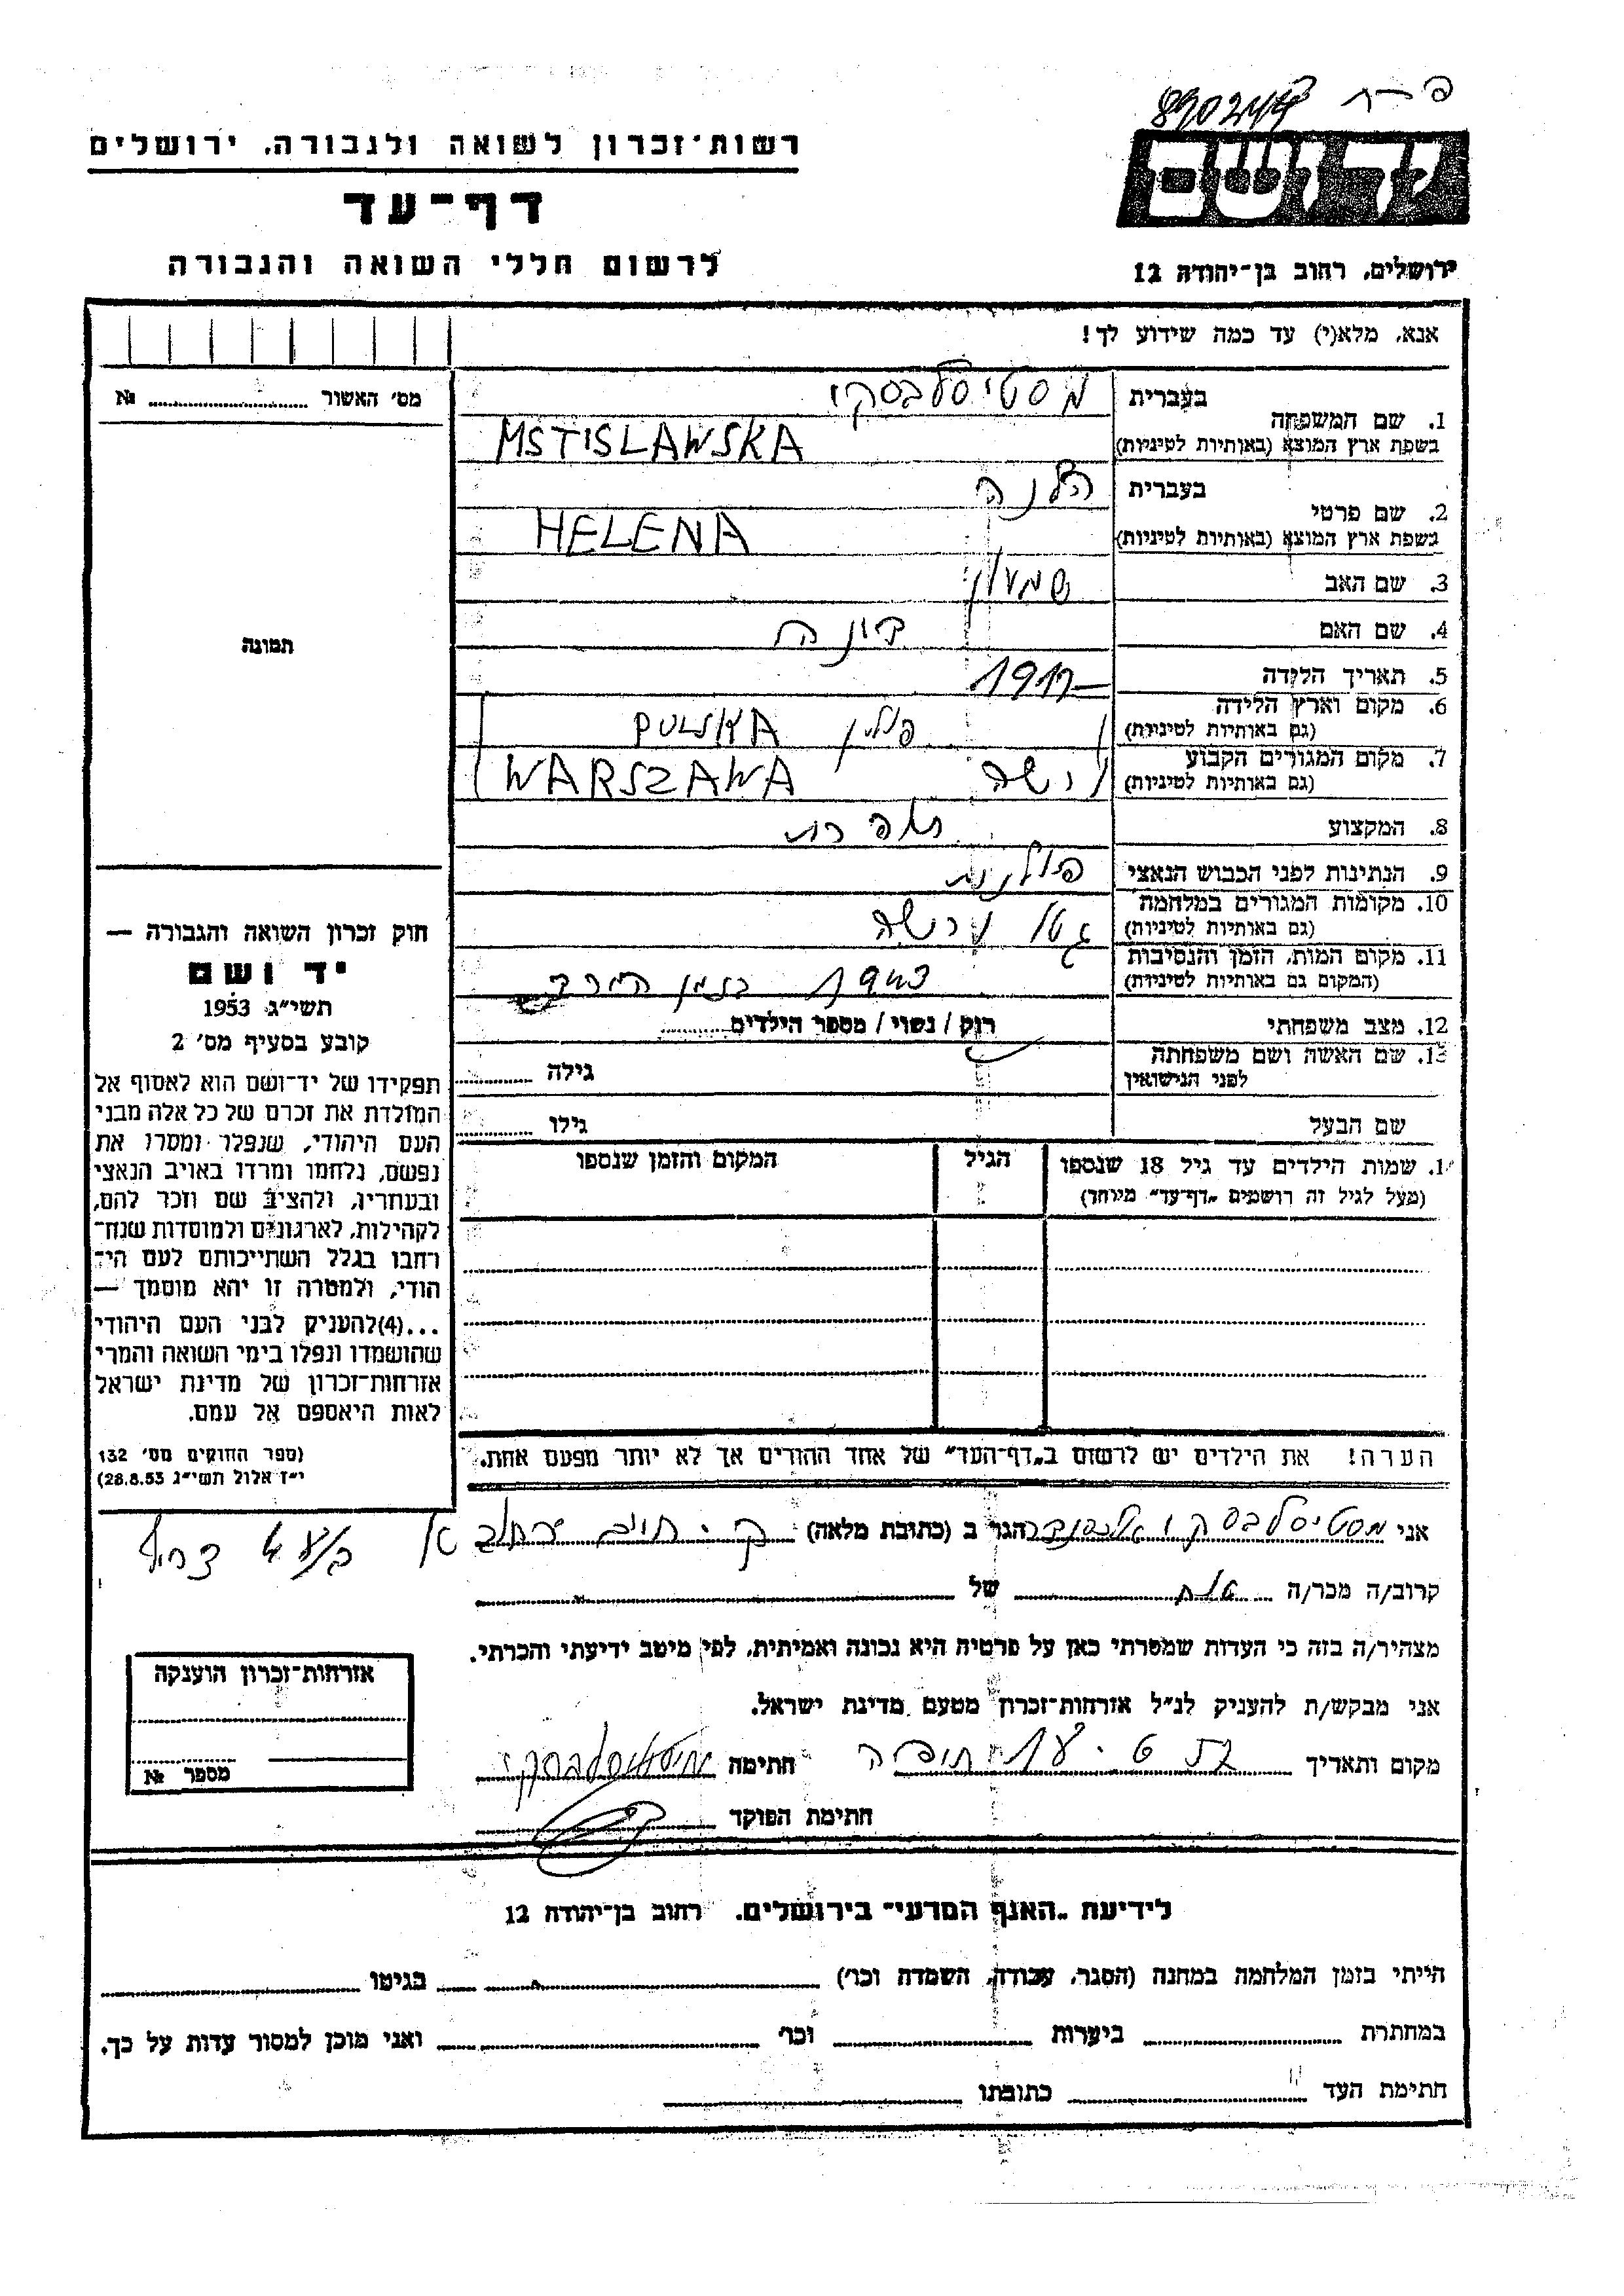 רשות־זכרון לשואה ולגבורה, ירושלים
דף־עד
לרשום חללי השואה והגבורה
ידושם
ירושלים, רחוב בן־יהודה 12
אנא, מלא(י) עד כמה שידוע לך!
מס׳ האשור № 
תמונה
בעברית מסטיסלבסקי
1. שם המשפחה
בשפת ארץ המוצא (באותיות לטיניות) MSTISLAWSKA
בעברית הלנה
2. שם פרטי
בשפת ארץ המוצא (באותיות לטיניות) HELENA
3. שם האב שמעון
4. שם האם
5. תאריך הלידה
6. מקום וארץ הלידה
(גם באותיות לטיניות) פולין POLSKA
7. מקום המגורים הקבוע
(גם באותיות לטיניות) ורשה WARSZAWA
8. המקצוע תופרת
9. הנתינות לפני הכבוש הנאצי פולנית
10. מקומות המגורים במלחמה
(גם באותיות לטיניות) גטו ורשה
11. מקום המות, הזמן והנסיבות
(המקום גם באותיות לטיניות) 1943 בזמן המרד
12. מצב משפחתי רווק / נשוי / מספר הילדים
13. שם האשה ושם משפחתה
לפני הנישואין גילה
שם הבעל גילו
1. שמות הילדים עד גיל 18 שנספו הגיל המקום והזמן שנספו
(מעל לגיל זה רושמים „דף־עד״ מיוחד)
הערה! את הילדים יש לרשום ב„דף־העד״ של אחד ההורים אך לא יותר מפעם אחת.
חוק זכרון השואה והגבורה —
יד ושם
תשי״ג 1953
קובע בסעיף מס׳ 2
תפקידו של יד־ושם הוא לאסוף אל
המולדת את זכרם של כל אלה מבני
העם היהודי, שנפלו ומסרו את
נפשם, נלחמו ומרדו באויב הנאצי
ובעוזריו, ולהציב שם וזכר להם,
לקהילות, לארגונים ולמוסדות שנח־
רחבו בגלל השתייכותם לעם הי־
הודי, ולמטרה זו יהא מוסמך —
...(4)להעניק לבני העם היהודי
שהושמדו ונפלו בימי השואה והמרי
אזרחות־זכרון של מדינת ישראל
לאות היאספם אל עמם.
(ספר החוקים מס׳ 132
י״ז אלול תשי״ג 28.8.53)
אני מסטיסלבסקי אלכסנדר הגר ב (כתובת מלאה)
קרוב/ה מכר/ה אח של
מצהיר/ה בזה כי העדות שמסרתי כאן על פרטיה היא נכונה ואמיתית, לפי מיטב ידיעתי והכרתי.
אני מבקש/ת להעניק לנ״ל אזרחות־זכרון מטעם מדינת ישראל.
מקום ותאריך חתימה מסטיסלבסקי
חתימת הפוקד
אזרחות־זכרון הוענקה
מספר №
לידיעת „האגף המדעי״ בירושלים, רחוב בן־יהודה 12
הייתי בזמן המלחמה במחנה (הסגר, עבודה, השמדה וכו׳) בגיטו
במחתרת ביערות וכו׳ ואני מוכן למסור עדות על כך.
חתימת העד כתובתו